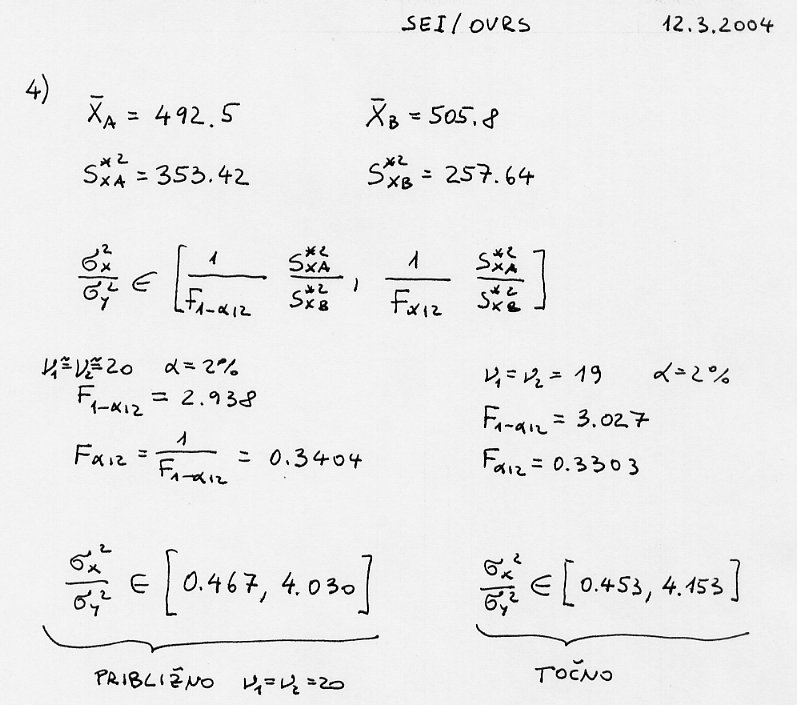 SEI/OVRS 12.3.2004
4)
X̄_A = 492.5 X̄_B = 505.8
S*²_XA = 353.42 S*²_XB = 257.64
σ_x²/σ_y² ∈ [1/F_1-α/2 S*²_XA/S*²_XB, 1/F_α/2 S*²_XA/S*²_XB]
ν₁≅ν₂≅20 α=2% ν₁=ν₂=19 α=2%
F_1-α/2 = 2.938 F_1-α/2 = 3.027
F_α/2 = 1/F_1-α/2 = 0.3404 F_α/2 = 0.3303
σ_x²/σ_y² ∈ [0.467, 4.030] σ_x²/σ_y² ∈ [0.453, 4.153]
PRIBLIŽNO ν₁=ν₂=20 TOČNO